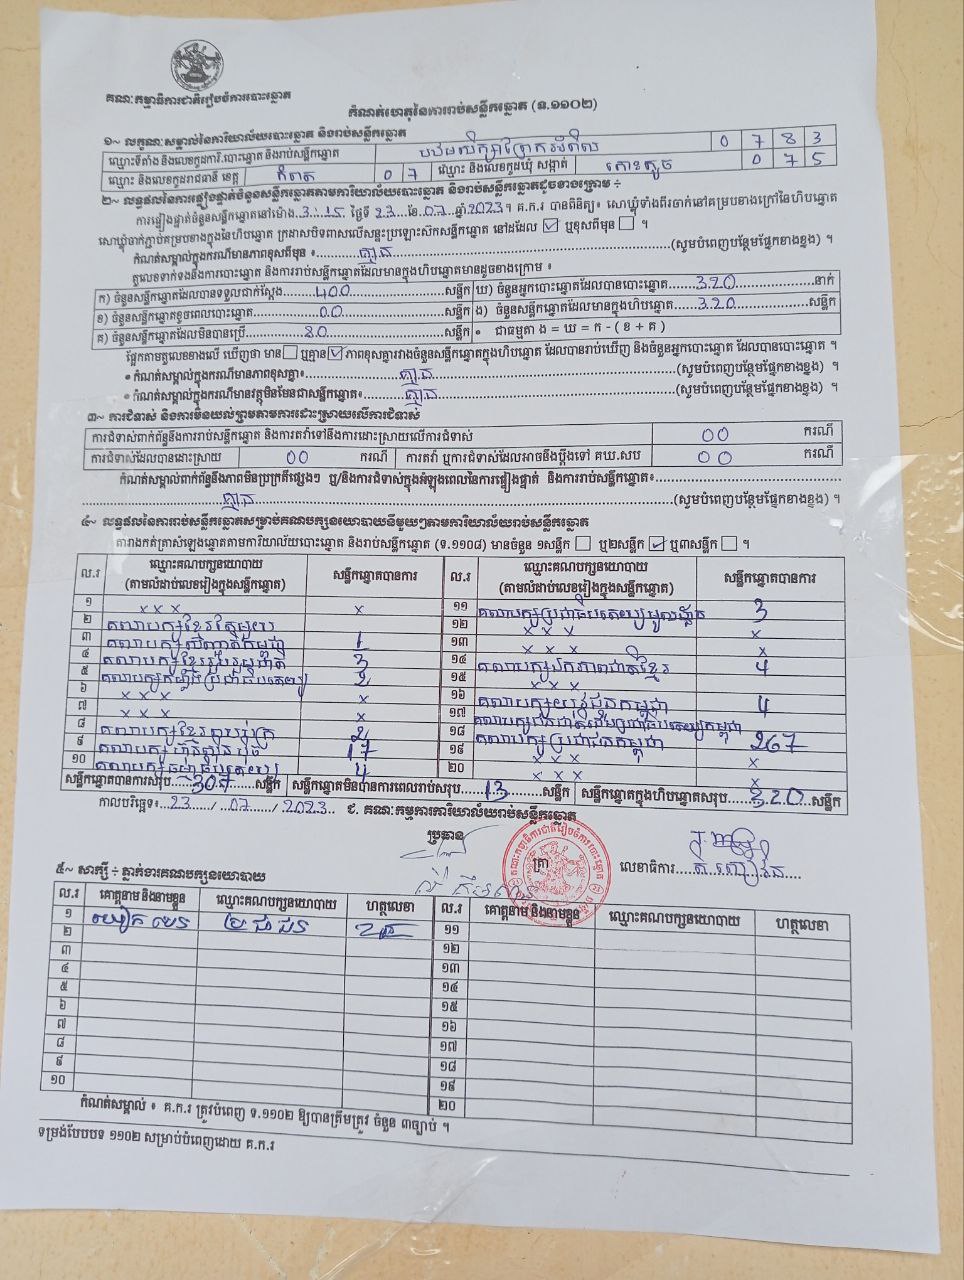 គណៈកម្មាធិការជាតិរៀបចំការបោះឆ្នោត
កំណត់ហេតុនៃការរាប់សន្លឹកឆ្នោត (ទ.១១០២)
១~ លក្ខណៈសម្គាល់នៃការិយាល័យបោះឆ្នោត និងរាប់សន្លឹកឆ្នោត
ឈ្មោះទីតាំង និងលេខកូដការិ.បោះឆ្នោត និងរាប់សន្លឹកឆ្នោត 0 7 8 3
ឈ្មោះ និងលេខកូដរាជធានី ខេត្ត កំពត 0 7 ឈ្មោះ និងលេខកូដឃុំ សង្កាត់ កោះតូច 0 7 5
២~ លទ្ធផលនៃការផ្ទៀងផ្ទាត់ចំនួនសន្លឹកឆ្នោតតាមការិយាល័យបោះឆ្នោត និងរាប់សន្លឹកឆ្នោតដូចខាងក្រោម ÷
ការផ្ទៀងផ្ទាត់ចំនួនសន្លឹកឆ្នោតនៅម៉ោង 3:15 ថ្ងៃទី 23 ខែ 07 ឆ្នាំ 2023។ គ.ក.រ បានពិនិត្យ៖ សោឃ្លុំទាំងពីរចាក់នៅគម្របខាងក្រៅនៃហិបឆ្នោត
សោឃ្លុំចាក់ភ្ជាប់គម្របខាងក្នុងនៃហិបឆ្នោត ក្រដាសបិទពាសលើសន្ទះប្រឡោះស៊កសន្លឹកឆ្នោត នៅដដែល ☑ ឬខុសពីមុន ☐ ។
កំណត់សម្គាល់ក្នុងករណីមានភាពខុសពីមុន ៖ គ្មាន (សូមបំពេញបន្ថែមផ្នែកខាងខ្នង) ។
តួលេខទាក់ទងនឹងការបោះឆ្នោត និងការរាប់សន្លឹកឆ្នោតដែលមានក្នុងហិបឆ្នោតមានដូចខាងក្រោម ៖
ក) ចំនួនសន្លឹកឆ្នោតដែលបានទទួលជាក់ស្តែង 400 សន្លឹក ឃ) ចំនួនអ្នកបោះឆ្នោតដែលបានបោះឆ្នោត 320 នាក់
ខ) ចំនួនសន្លឹកឆ្នោតខូចពេលបោះឆ្នោត 00 សន្លឹក ង) ចំនួនសន្លឹកឆ្នោតដែលមានក្នុងហិបឆ្នោត 320 សន្លឹក
គ) ចំនួនសន្លឹកឆ្នោតដែលមិនបានប្រើ 80 សន្លឹក • ជាធម្មតា ង = ឃ = ក - ( ខ + គ )
ផ្អែកតាមតួលេខខាងលើ ឃើញថា មាន ☐ ឬគ្មាន ☑ ភាពខុសគ្នារវាងចំនួនសន្លឹកឆ្នោតក្នុងហិបឆ្នោត ដែលបានរាប់ឃើញ និងចំនួនអ្នកបោះឆ្នោត ដែលបានបោះឆ្នោត ។
• កំណត់សម្គាល់ក្នុងករណីមានភាពខុសគ្នា៖ គ្មាន (សូមបំពេញបន្ថែមផ្នែកខាងខ្នង) ។
• កំណត់សម្គាល់ក្នុងករណីមានវត្ថុមិនមែនជាសន្លឹកឆ្នោត៖ គ្មាន (សូមបំពេញបន្ថែមផ្នែកខាងខ្នង) ។
៣~ ការជំទាស់ និងការមិនយល់ព្រមតាមការដោះស្រាយលើការជំទាស់
ការជំទាស់ពាក់ព័ន្ធនឹងការរាប់សន្លឹកឆ្នោត និងការតវ៉ាទៅនឹងការដោះស្រាយលើការជំទាស់ 00 ករណី
ការជំទាស់ដែលបានដោះស្រាយ 00 ករណី ការតវ៉ា ឬការជំទាស់ដែលអាចនឹងប្តឹងទៅ គឃ.សប 00 ករណី
កំណត់សម្គាល់ពាក់ព័ន្ធនឹងភាពមិនប្រក្រតីផ្សេងៗ ឬ/និងការជំទាស់ក្នុងអំឡុងពេលនៃការផ្ទៀងផ្ទាត់ និងការរាប់សន្លឹកឆ្នោត៖
គ្មាន (សូមបំពេញបន្ថែមផ្នែកខាងខ្នង) ។
៤~ លទ្ធផលនៃការរាប់សន្លឹកឆ្នោតសម្រាប់គណបក្សនយោបាយនីមួយៗតាមការិយាល័យរាប់សន្លឹកឆ្នោត
តារាងកត់ត្រាសំឡេងឆ្នោតតាមការិយាល័យបោះឆ្នោត និងរាប់សន្លឹកឆ្នោត (ទ.១១០៨) មានចំនួន ១សន្លឹក ☐ ឬ២សន្លឹក ☑ ឬ៣សន្លឹក ☐ ។
ល.រ ឈ្មោះគណបក្សនយោបាយ (តាមលំដាប់លេខរៀងក្នុងសន្លឹកឆ្នោត) សន្លឹកឆ្នោតបានការ ល.រ ឈ្មោះគណបក្សនយោបាយ (តាមលំដាប់លេខរៀងក្នុងសន្លឹកឆ្នោត) សន្លឹកឆ្នោតបានការ
១ x x x x ១១ 3
២ គណបក្សខ្មែរតែមួយ ១២ x x x x
៣ 1 ១៣ x x x x
៤ គណបក្សខ្មែររួបរួមជាតិ 3 ១៤ គណបក្សឯកភាពជាតិខ្មែរ 4
៥ 2 ១៥ x x x
៦ x x x x ១៦ គណបក្សយុវជនកម្ពុជា 4
៧ x x x x ១៧
៨ 2 ១៨ គណបក្សប្រជាជនកម្ពុជា 267
៩ គណបក្សហ៊្វុនស៊ិនប៉ិច 17 ១៩ x x x x
១០ គណបក្សធម្មាធិបតេយ្យ 4 ២០ x x x x
សន្លឹកឆ្នោតបានការសរុប 307 សន្លឹក សន្លឹកឆ្នោតមិនបានការពេលរាប់សរុប 13 សន្លឹក សន្លឹកឆ្នោតក្នុងហិបឆ្នោតសរុប 320 សន្លឹក
កាលបរិច្ឆេទ៖ 23 / 07 / 2023 ជ. គណៈកម្មការការិយាល័យរាប់សន្លឹកឆ្នោត
ប្រធាន ត្រា លេខាធិការ
៥~ សាក្សី ÷ ភ្នាក់ងារគណបក្សនយោបាយ
ល.រ គោត្តនាម និងនាមខ្លួន ឈ្មោះគណបក្សនយោបាយ ហត្ថលេខា ល.រ គោត្តនាម និងនាមខ្លួន ឈ្មោះគណបក្សនយោបាយ ហត្ថលេខា
១ ប្រជាជន ១១
២ ១២
៣ ១៣
៤ ១៤
៥ ១៥
៦ ១៦
៧ ១៧
៨ ១៨
៩ ១៩
១០ ២០
កំណត់សម្គាល់ ៖ គ.ក.រ ត្រូវបំពេញ ទ.១១០២ ឱ្យបានត្រឹមត្រូវ ចំនួន ៣ច្បាប់ ។
ទម្រង់បែបបទ ១១០២ សម្រាប់បំពេញដោយ គ.ក.រ